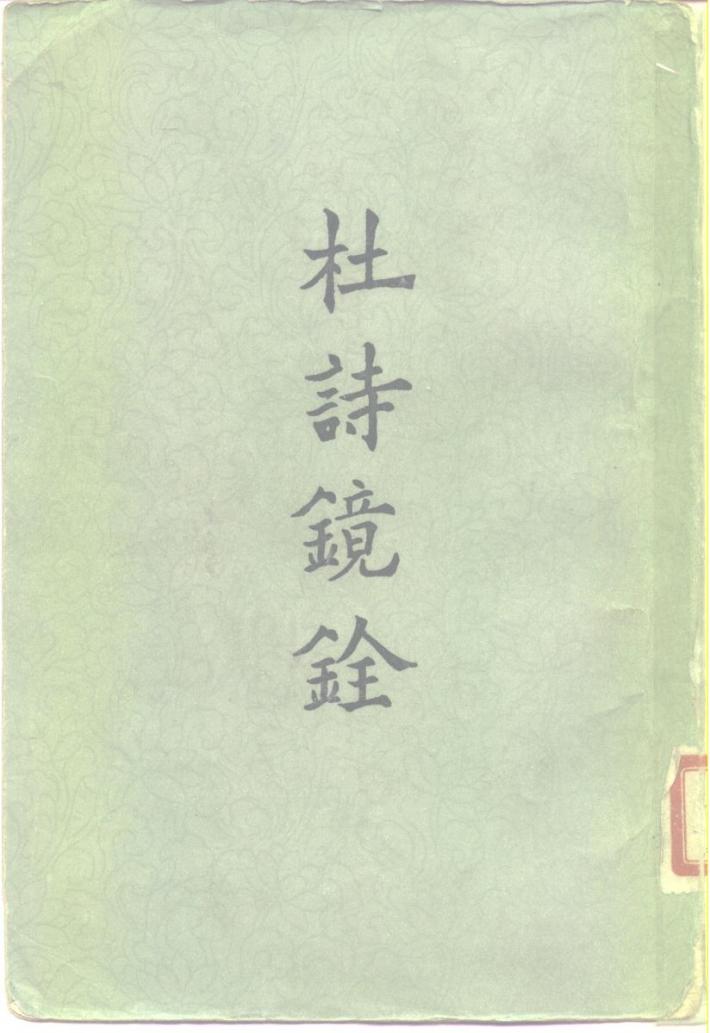 杜詩鏡銓